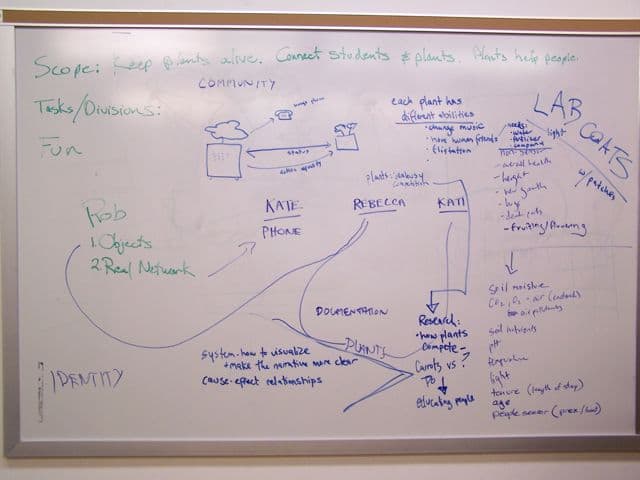 Scope: Keep plants alive. Connect students & plants. Plants help people.
COMMUNITY
Tasks/Divisions:
Fun
status
action
each plant has
different abilities
· change music
· have human friends
· flirtation
needs:
· water
· fertilizer
· company
light
LAB
COATS
w/patches
- overall health
- height
- new growth
- bug
- fruiting/flowering
plants:
competition
KATE
PHONE
REBECCA
KATI
Rob
1. Objects
2. Real Network
DOCUMENTATION
PLANTS
system - how to visualize
+ make the narrative more clear
cause - effect relationships
Research:
· how plants
compete -
Carrots vs ?
educating people
soil moisture
CO2, O2 - air
air pollutants
soil nutrients
pH
temperature
light
tenure (length of stay)
age
people sensor
IDENTITY